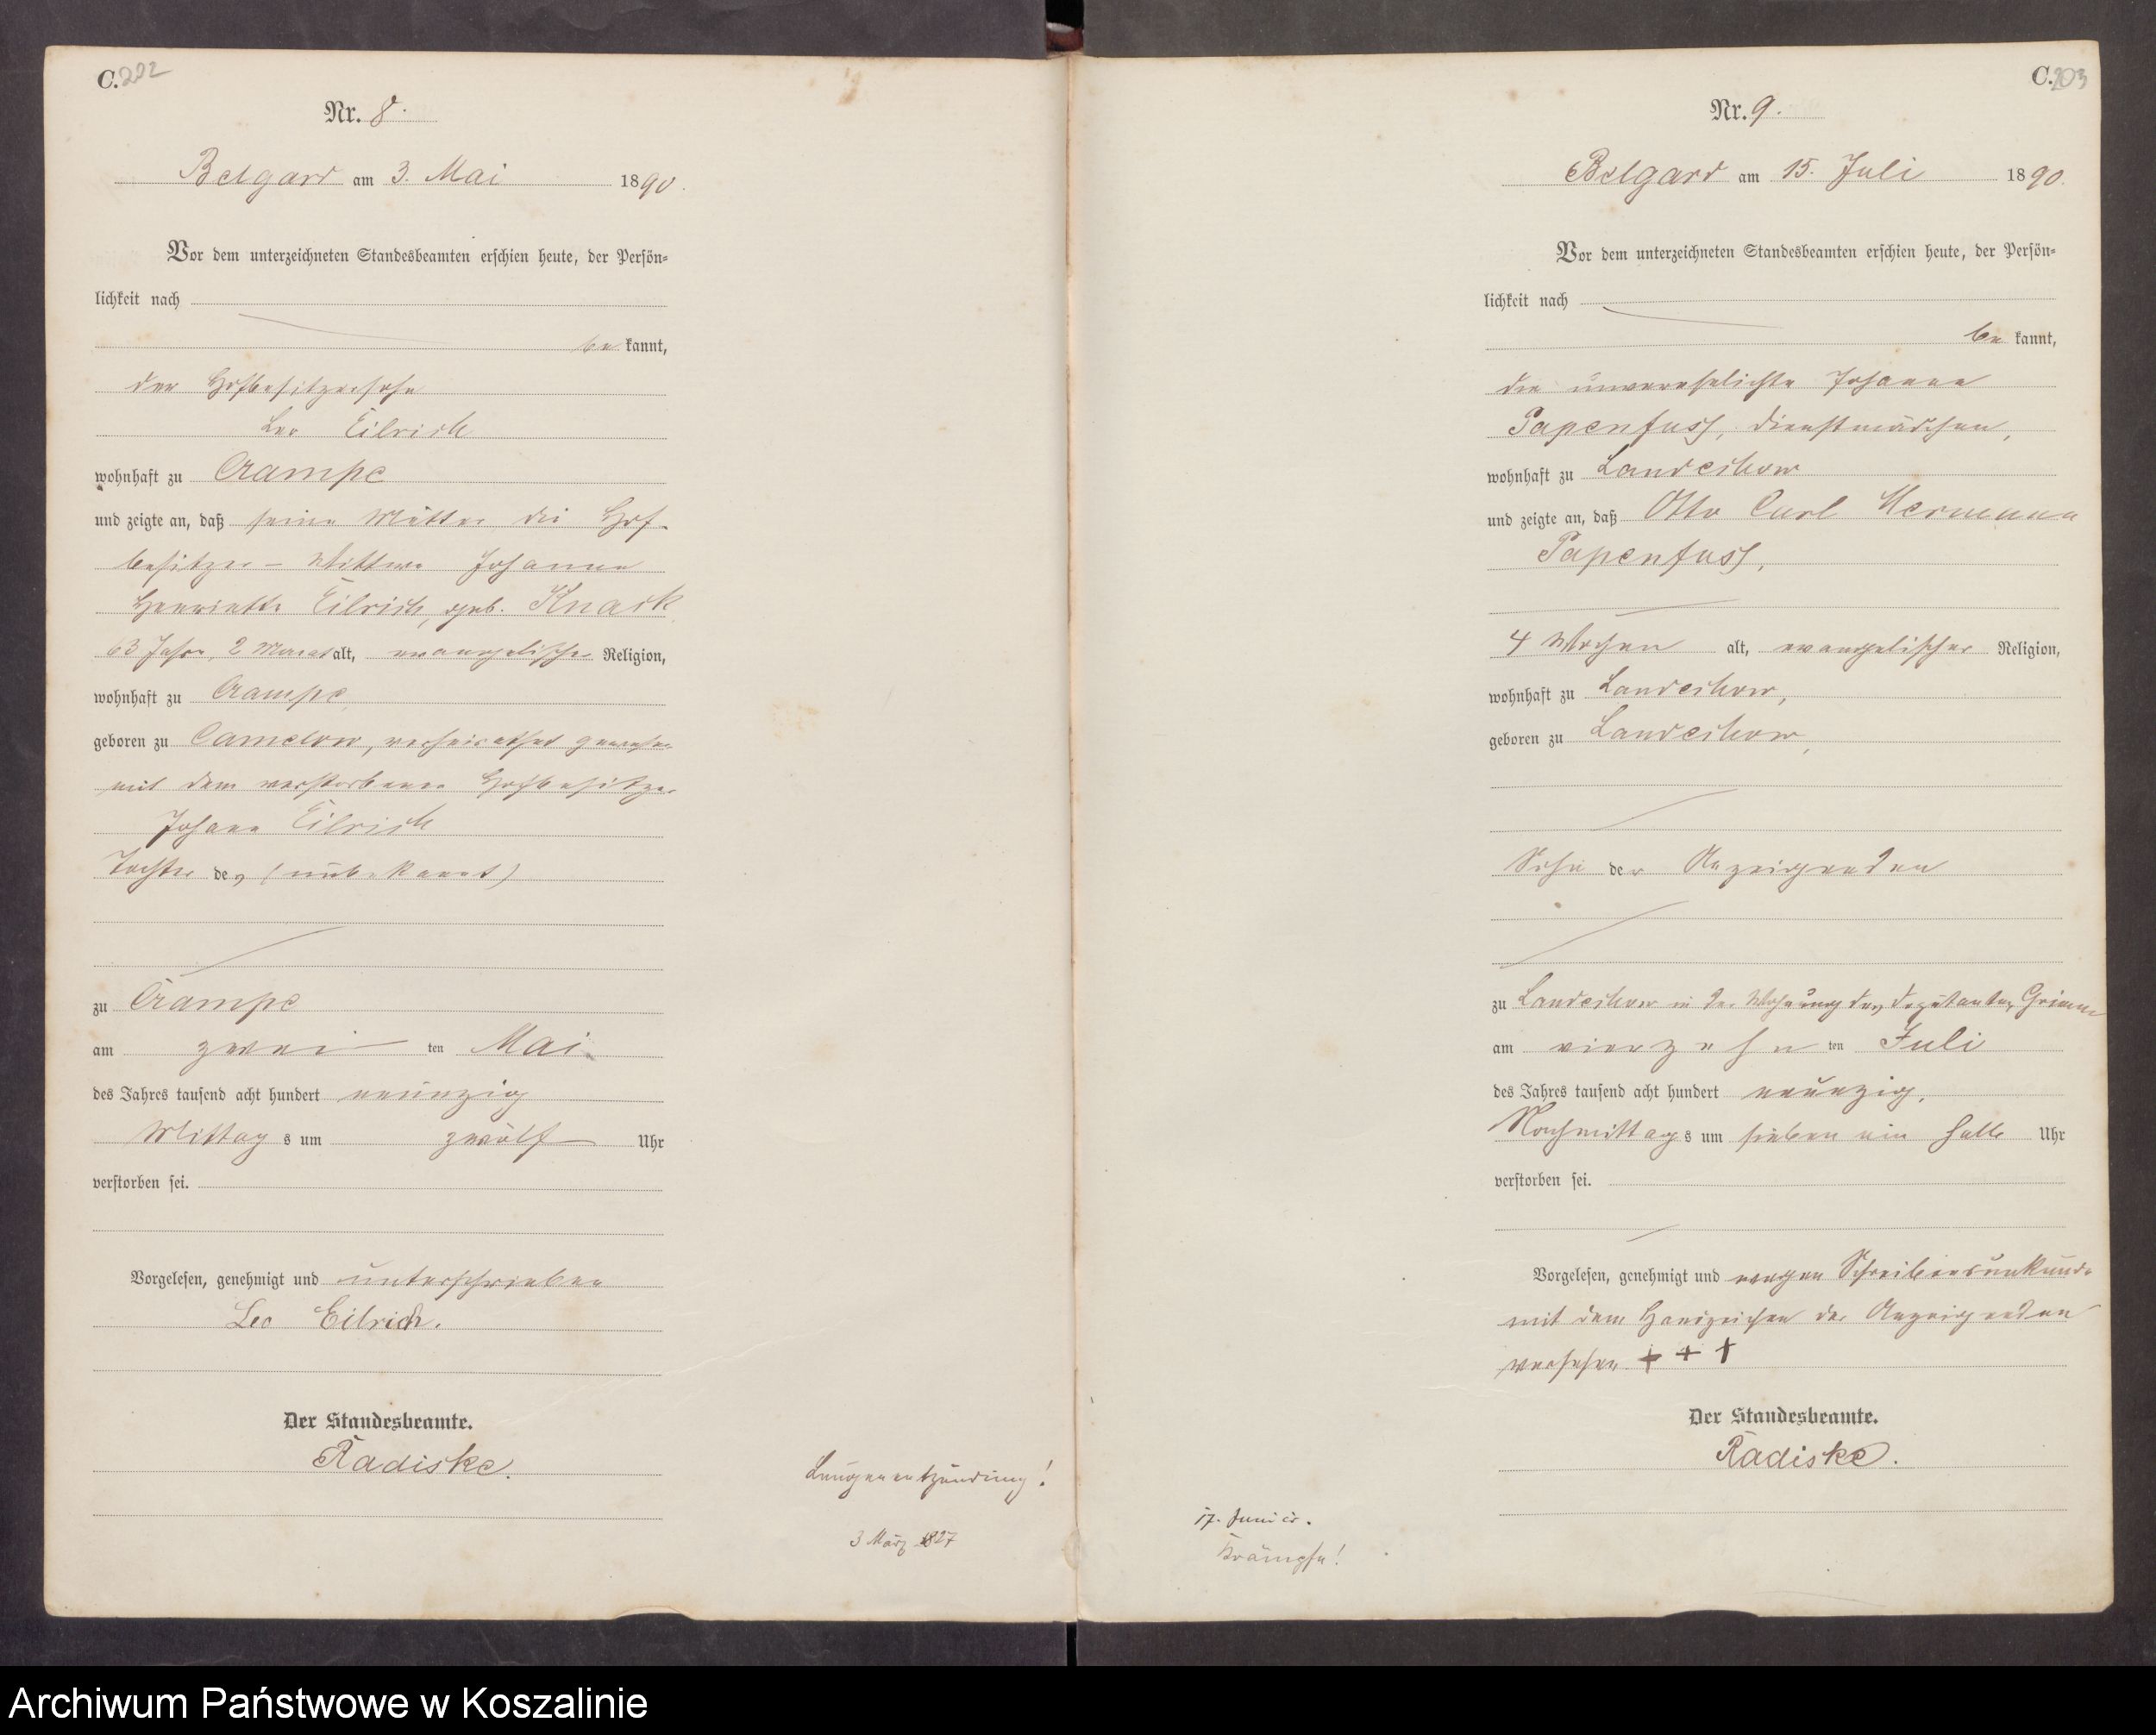 C. 202
Nr. 8.
Belgard am 3. Mai 1890.
Vor dem unterzeichneten Standesbeamten erschien heute, der Persön-
lichkeit nach
be kannt,
der Hofbesitzersohn
Leo Eilrich
wohnhaft zu Crampe
und zeigte an, daß seine Mutter die Hof-
besitzer-Wittwe Johanne
Henriette Eilrich, geb. Knack
63 Jahre, 2 Monat alt, evangelischer Religion,
wohnhaft zu Crampe,
geboren zu Camelow, verheirathet gewesen
mit dem verstorbenen Hofbesitzer
Johann Eilrich
Tochter des (unbekannt)
zu Crampe
am zwei ten Mai
des Jahres tausend acht hundert neunzig
Mittag s um zwölf Uhr
verstorben sei.
Vorgelesen, genehmigt und unterschrieben
Leo Eilrich.
Der Standesbeamte.
Radiske.
Lungenentzündung!
3 März 1827
C. 203
Nr. 9.
Belgard am 15. Juli 1890.
Vor dem unterzeichneten Standesbeamten erschien heute, der Persön-
lichkeit nach
be kannt,
die unverehelichte Johanna
Papenfuss, Dienstmädchen,
wohnhaft zu Landechow
und zeigte an, daß Otto Carl Hermann
Papenfuss,
4 Wochen alt, evangelischer Religion,
wohnhaft zu Landechow,
geboren zu Landechow,
Sohn der Anzeigenden
zu Landechow in der Wohnung des Deputanten Grimm
am vierzehn ten Juli
des Jahres tausend acht hundert neunzig,
Nachmittag s um sieben ein halb Uhr
verstorben sei.
Vorgelesen, genehmigt und wegen Schreibensunkunde
mit dem Handzeichen der Anzeigenden
versehen + + +
Der Standesbeamte.
Radiske.
17. Juni cr.
Krämpfe!
Archiwum Państwowe w Koszalinie